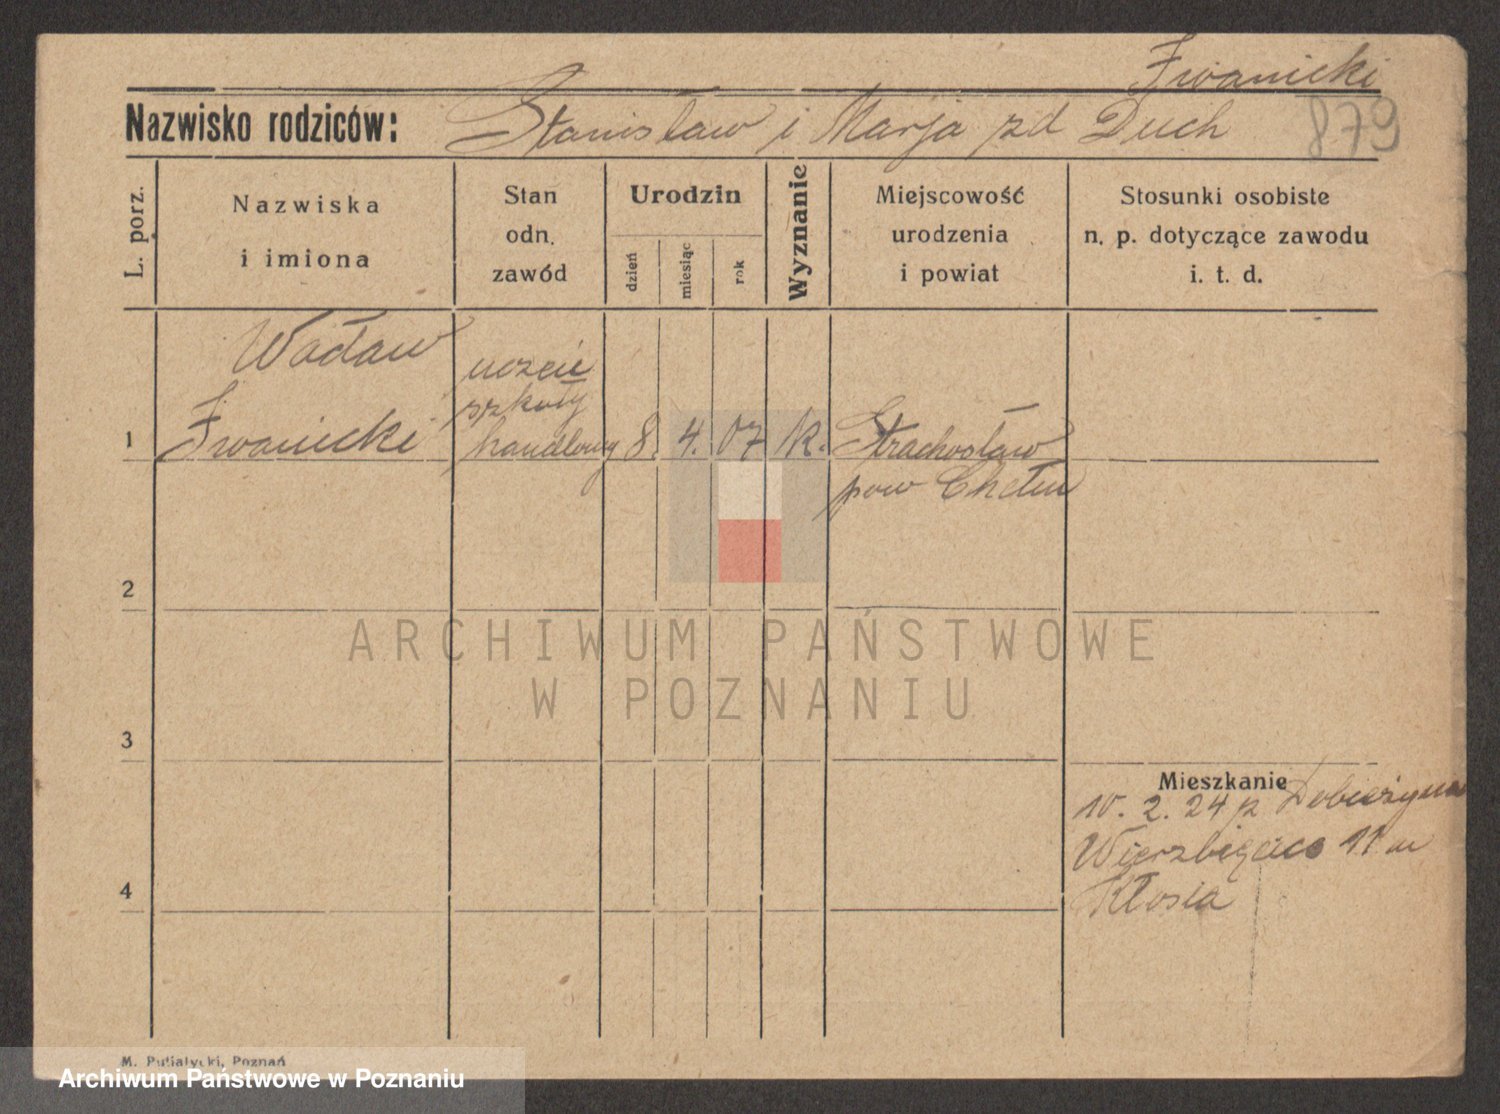 Iwanicki
Nazwisko rodziców: Stanisław i Marja zd Duch
879
L. porz.
Nazwiska
i imiona
Stan
odn.
zawód
Urodzin
dzień
miesiąc
rok
Wyznanie
Miejscowość
urodzenia
i powiat
Stosunki osobiste
n. p. dotyczące zawodu
i. t. d.
1
Wacław
Iwanicki
uczeń
szkoły
handlowy
8. 4. 07 k.
Strachosław
pow Chełm
2
ARCHIWUM PAŃSTWOWE
W POZNANIU
3
Mieszkanie
10. 2. 24 z Dobieżyna
Wierzbięcice 11 m
Kłosia
4
M. Putiatycki, Poznań
Archiwum Państwowe w Poznaniu